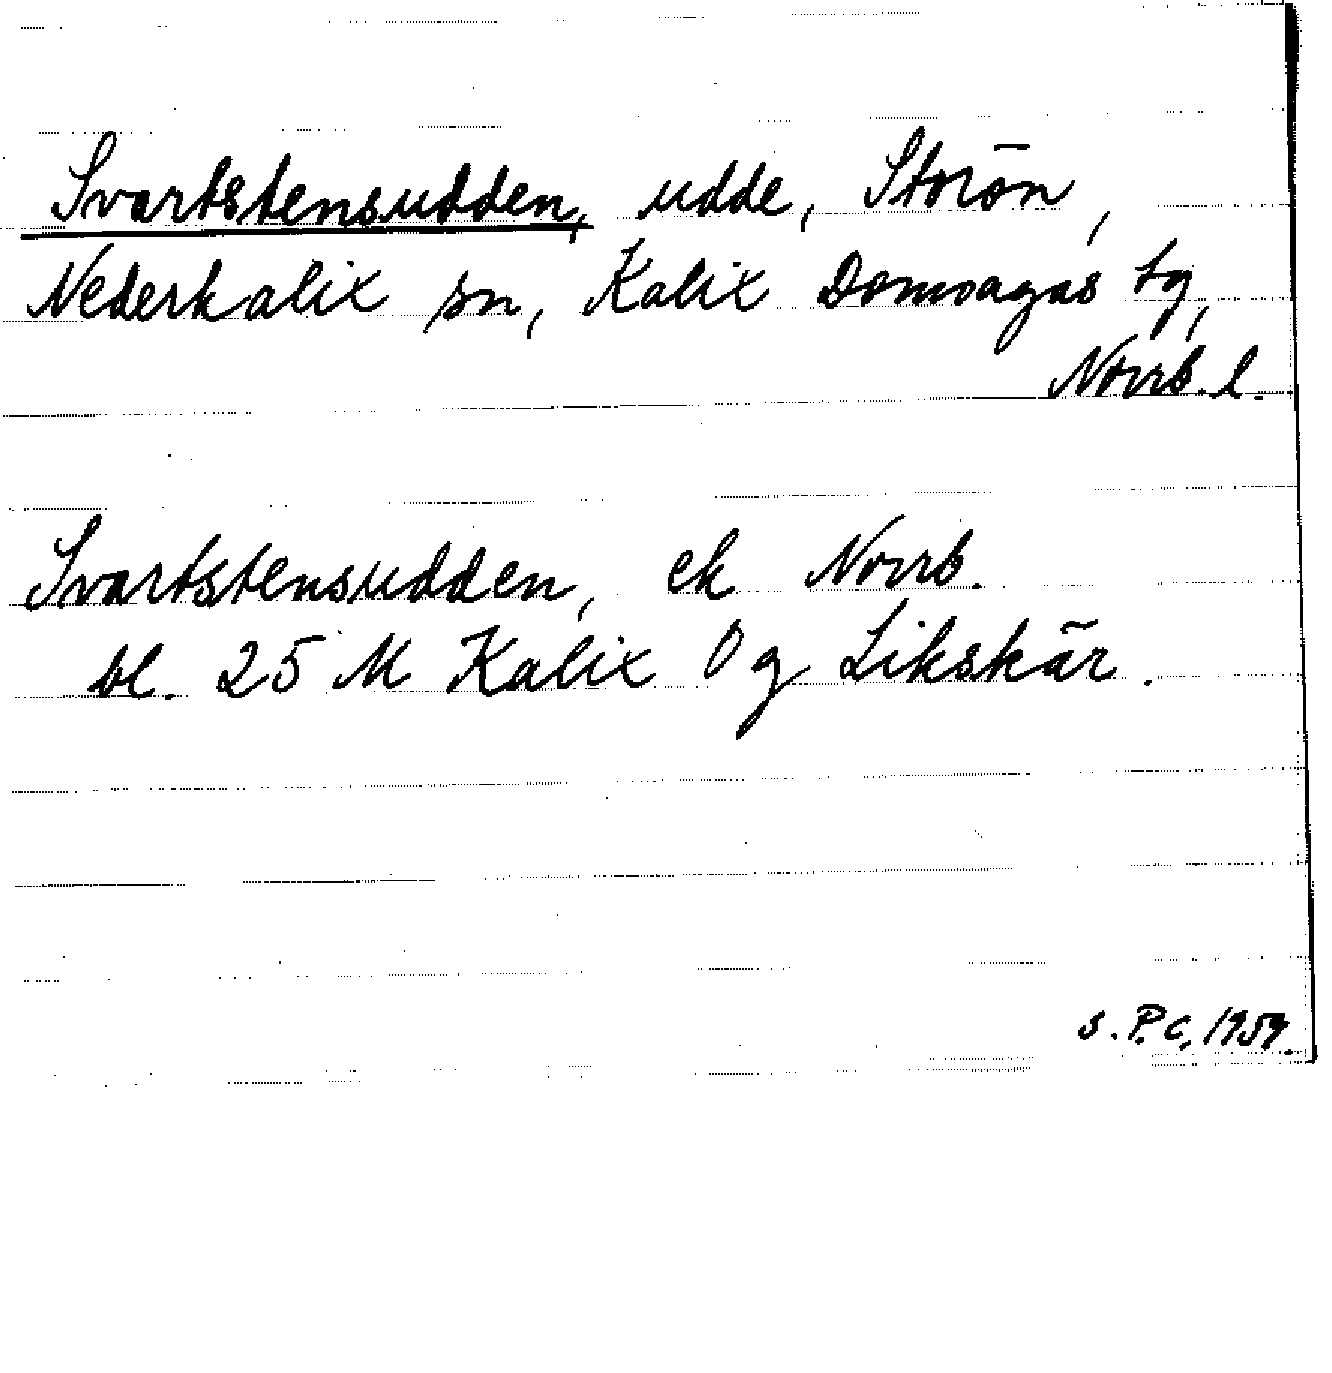 Svartstensudden, udde, Storön,
Nederkalix sn, Kalix Domsagas tg,
Norrb. l.
Svartstensudden, ek Norrb.
bl. 25 M Kalix 0 g Likskär.
s. P. C, 1959.